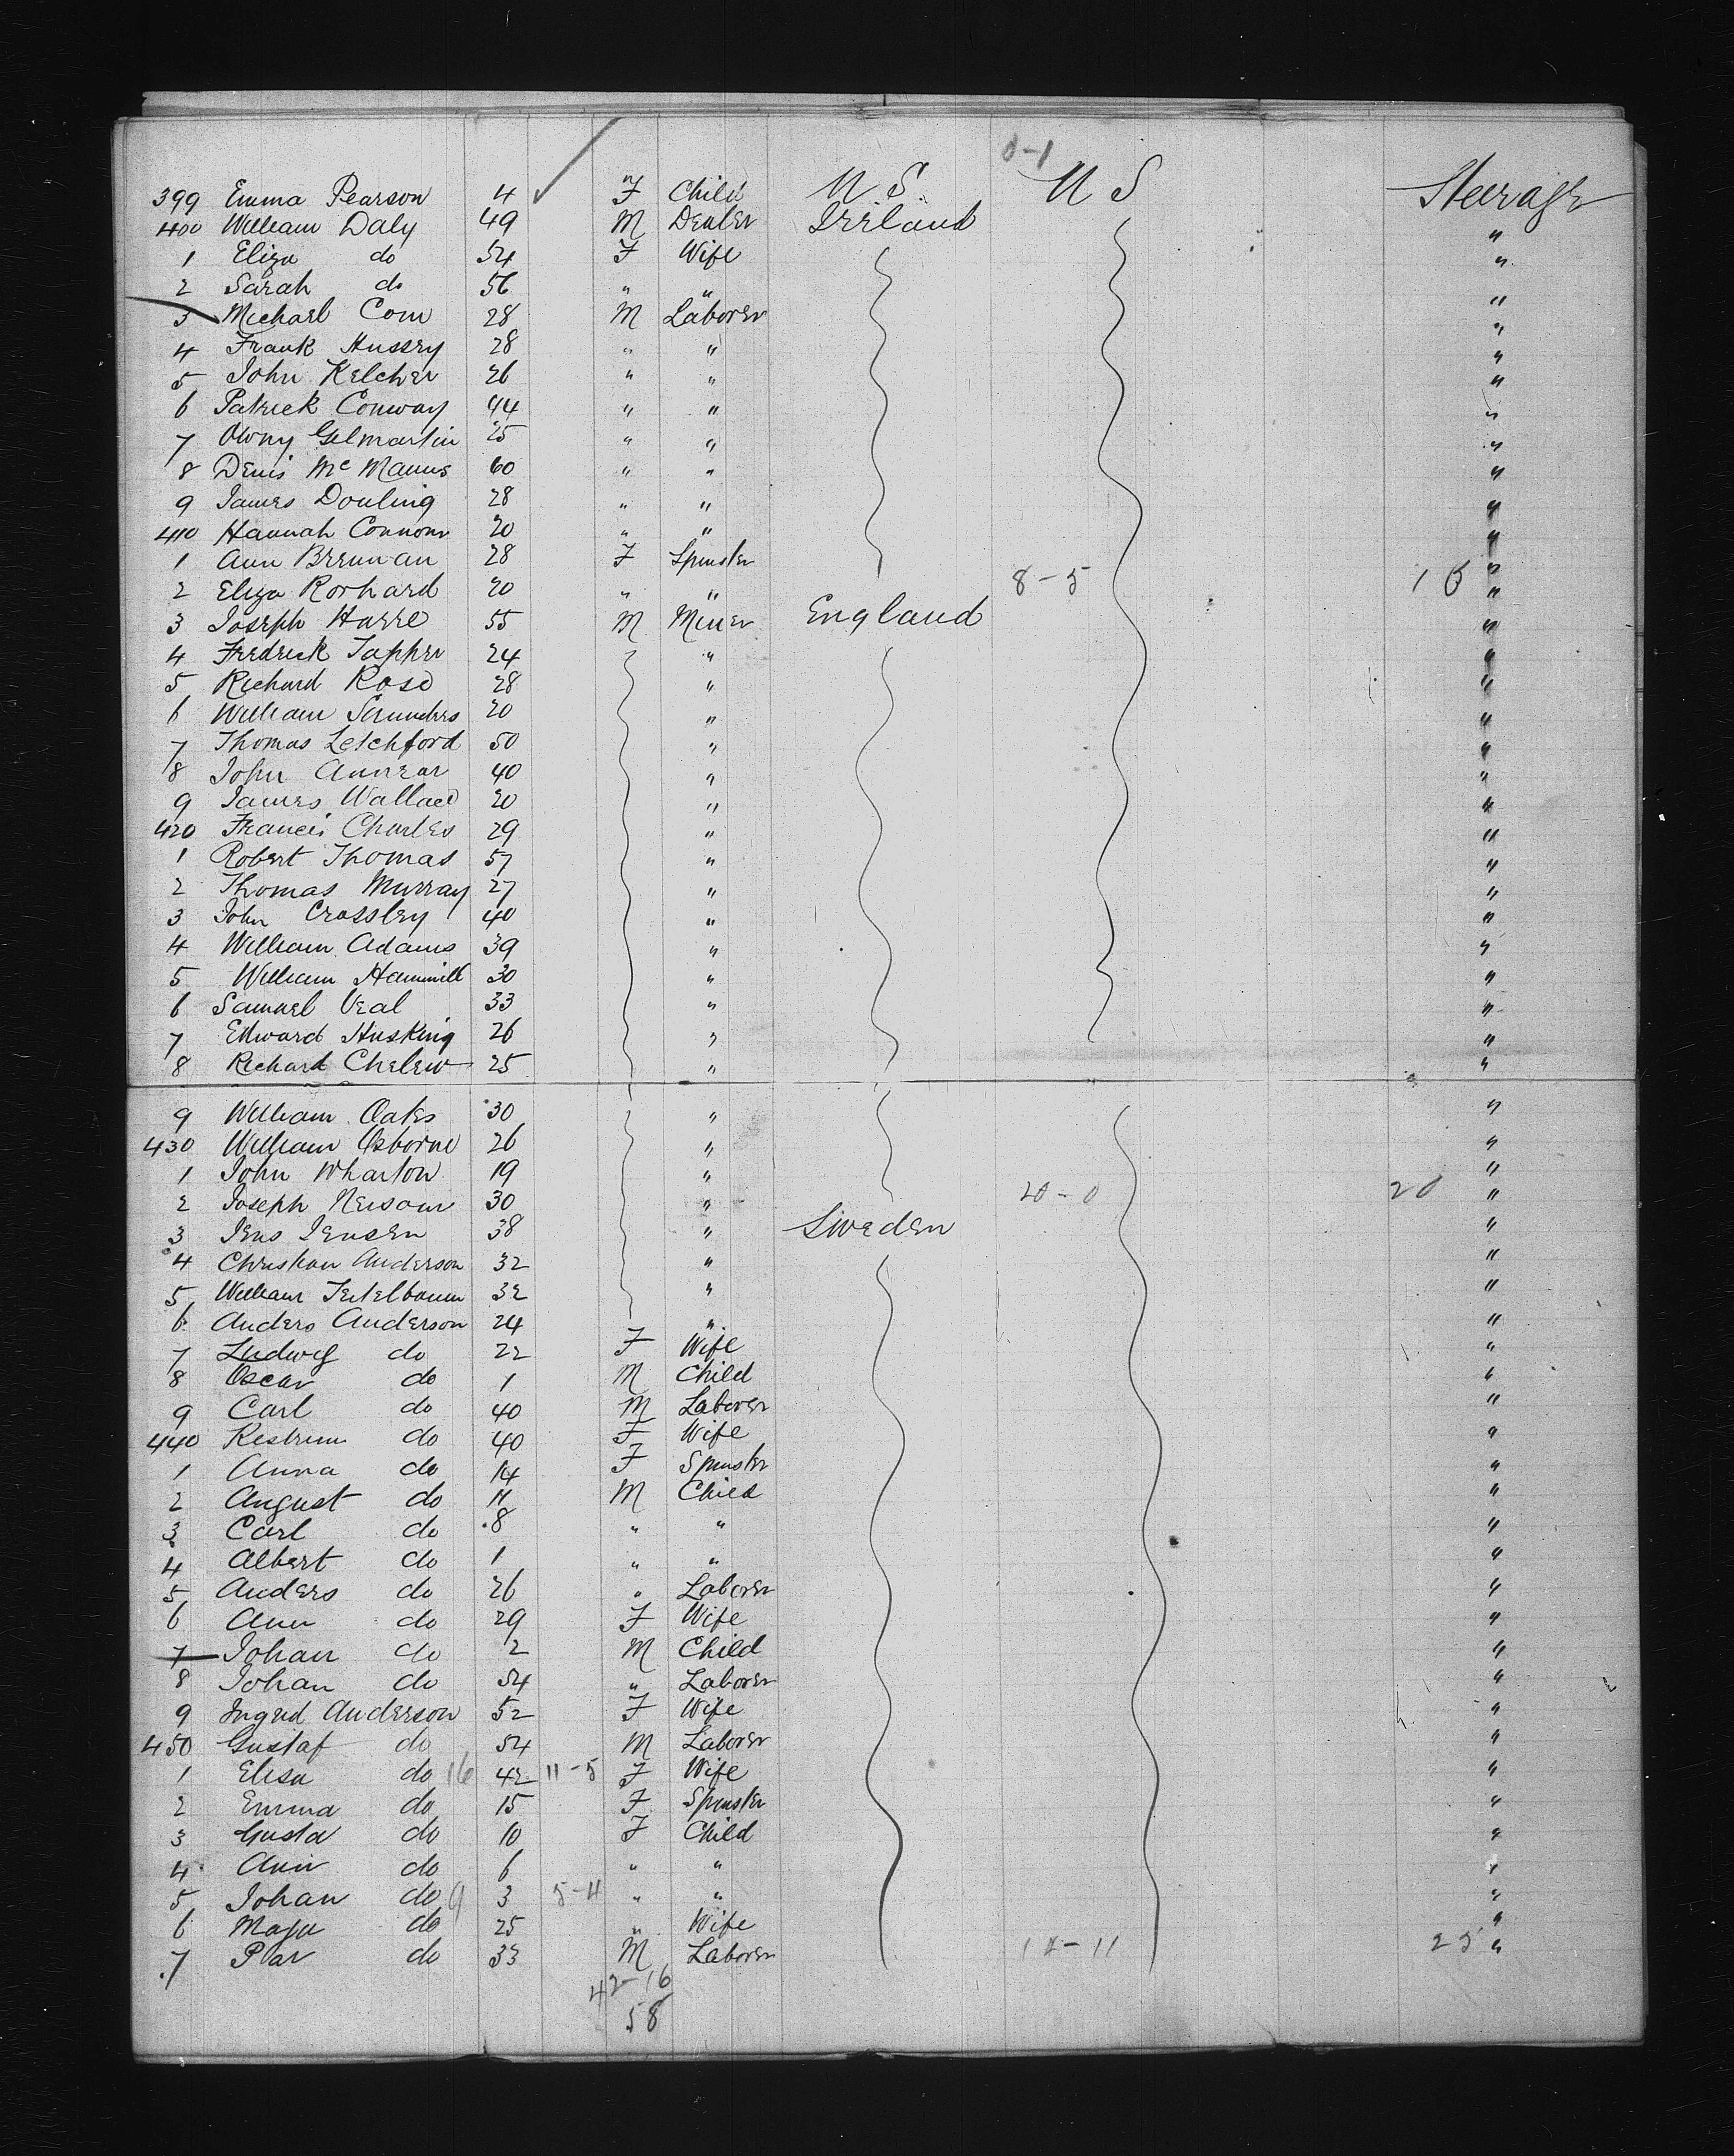 0-1
399 Emma Pearson 4 " F Child U S. U S Steerage
400 William Daly 49 M Dealer Ireland "
1 Eliza do 54 F Wife "
2 Sarah do 56 " " "
3 Michael Com 28 M Laborer "
4 Frank Hussey 28 " " "
5 John Kelcher 26 " " "
6 Patrick Conway 44 " " "
7 Owny Gilmartin 25 " " "
8 Denis Mc Manus 60 " " "
9 James Douling 28 " " "
410 Hannah Connom 20 " " "
1 Ann Brennan 28 F Spinster "
2 Eliza Rorhard 20 " " 8-5 "
3 Joseph Harre 55 M Miner England "
4 Fredrick Tapper 24 " "
5 Richard Rose 28 " "
6 William Saunders 20 " "
7 Thomas Letchford 50 " "
8 John Annear 40 " "
9 James Wallace 20 " "
420 Francis Charles 29 " "
1 Robert Thomas 57 " "
2 Thomas Murray 27 " "
3 John Crossley 40 " "
4 William Adams 39 " "
5 William Hammill 30 " "
6 Samuel Veal 33 " "
7 Edward Husking 26 " "
8 Richard Chelew 25 " "
9 William Oates 30 " "
430 William Osborne 26 " "
1 John Wharton 19 " "
2 Joseph Newsom 30 " 20-0 20 "
3 Jens Jensen 38 " Sweden "
4 Christian Anderson 32 " "
5 William Teitelbaum 32 " "
6 Anders Anderson 24 " "
7 Ludwig do 22 F Wife "
8 Oscar do 1 M Child "
9 Carl do 40 M Laborer "
440 Kestrum do 40 F Wife "
1 Anna do 14 F Spinster "
2 August do 11 M Child "
3 Carl do 8 " " "
4 Albert do 1 " " "
5 Anders do 26 " Laborer "
6 Ann do 29 F Wife "
7 Johan do 2 M Child "
8 Johan do 54 " Laborer "
9 Ingrid Anderson 52 F Wife "
450 Gustaf do 54 M Laborer "
1 Elisa do 16 42 11-5 F Wife "
2 Emma do 15 F Spinster "
3 Gusta do 10 F Child "
4 Ann do 6 " " "
5 Johan do 9 3 5-4 " " "
6 Maja do 25 " Wife "
7 Par do 33 M Laborer 14-11 25 "
42-16
58